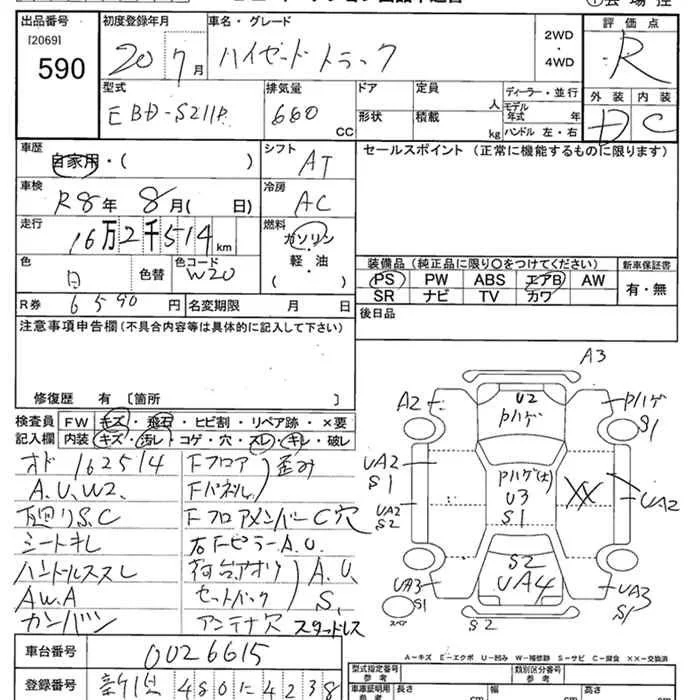 出品番号
[2069]
590
初度登録年月
20 7月
車名・グレード
ハイゼットトラック
2WD
・
4WD
評価点
R
型式
EBD-S211P
排気量
660
CC
ドア
定員
人
形状
積載
kg
ディーラー・並行
モデル年式 年
ハンドル 左・右
外装
内装
D
C
車歴
自家用・( )
シフト
AT
セールスポイント (正常に機能するものに限ります)
車検
R8年 8月( 日)
冷房
AC
走行
16万2千514km
燃料
ガソリン
軽・油
( )
色
白
色替
色コード
W20
装備品 (純正品に限り〇をつけてください)
新車保証書
PS PW ABS エアB AW
SR ナビ TV カワ
有・無
R券 6590円
名変期限 月 日
後日品
注意事項申告欄(不具合内容等は具体的に記入して下さい)
修復歴 有 [箇所 ]
検査員記入欄
FW キズ・飛石・ヒビ割・リペア跡・×要
内装 キズ・汚レ・コゲ・穴・スレ・キレ・破レ
オド 162514
A.U.W2.
下廻りS.C
シートキレ
ハンドルスレ
AW.A
カンバン
Fフロア
Fパネル
歪み
FフロアメンバーC穴
右FピラーA.U.
荷台アオリ
セットバック
A.U.
S,
アンテナ欠 スタッドレス
A3
A2
U2
Pハゲ
Pハゲ
S1
UA2
S1
Pハゲ(大)
U3
S1
XX
UA2
S2
UA2
S2
UA4
UA3
S1
UA3
S1
スペア
S2
A-キズ E-エクボ U-凹み W-補修跡 S-サビ C-腐食 XX-交換済
車台番号
0026615
登録番号
480に4238
型式指定番号
参考
類別区分番号
参考
車庫証明用
参考
長さ
cm
幅
cm
高さ
cm